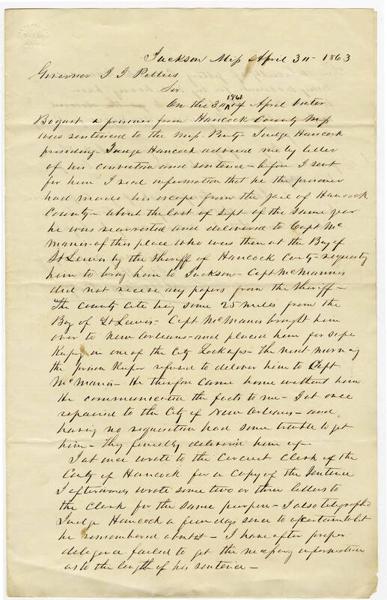 Jackson Miss April 30 - 1863
Governor J J Pettus
Sir
On the 30 of April 1861 Peter
Bogart a prisoner from Hancock County Miss
was sentenced to the Miss Penty - Judge Hancock
presiding - Judge Hancock advised me by letter
of his conviction and sentence - before I sent
for him I recd information that he the prisoner
had made his escape from the jail of Hancock
County - about the last of Sept of the same year
he was rearrested and delivered to Capt Mc
Manus of this place who was then at the Bay of
St Louis by the sheriff of Hancock County - requesting
him to bring him to Jackson - Capt McMannus
did not receive any papers from the Sheriff -
The County Cite being some 25 miles from the
Bay of St Louis - Capt McManus brought him
over to New Orleans - and placed him for safe
keeping in one of the City Lockups - the next morning
the prison keeper refused to deliver him to Capt
McManus - He therefore came home without him
He communicated the facts to me - I at once
repaired to the City of New Orleans - and
having no requisition had some trouble to get
him - they finally delivered him up -
I at once wrote to the Circuit Clerk of the
County of Hancock for a Copy of the Sentence
I afterwards wrote some two or three letters to
the Clerk for the same purpose - I also telegraphed
Judge Hancock a few days since to ascertain what
he remembered about - I have after proper
diligence failed to get the necessary information
as to the length of his sentence -